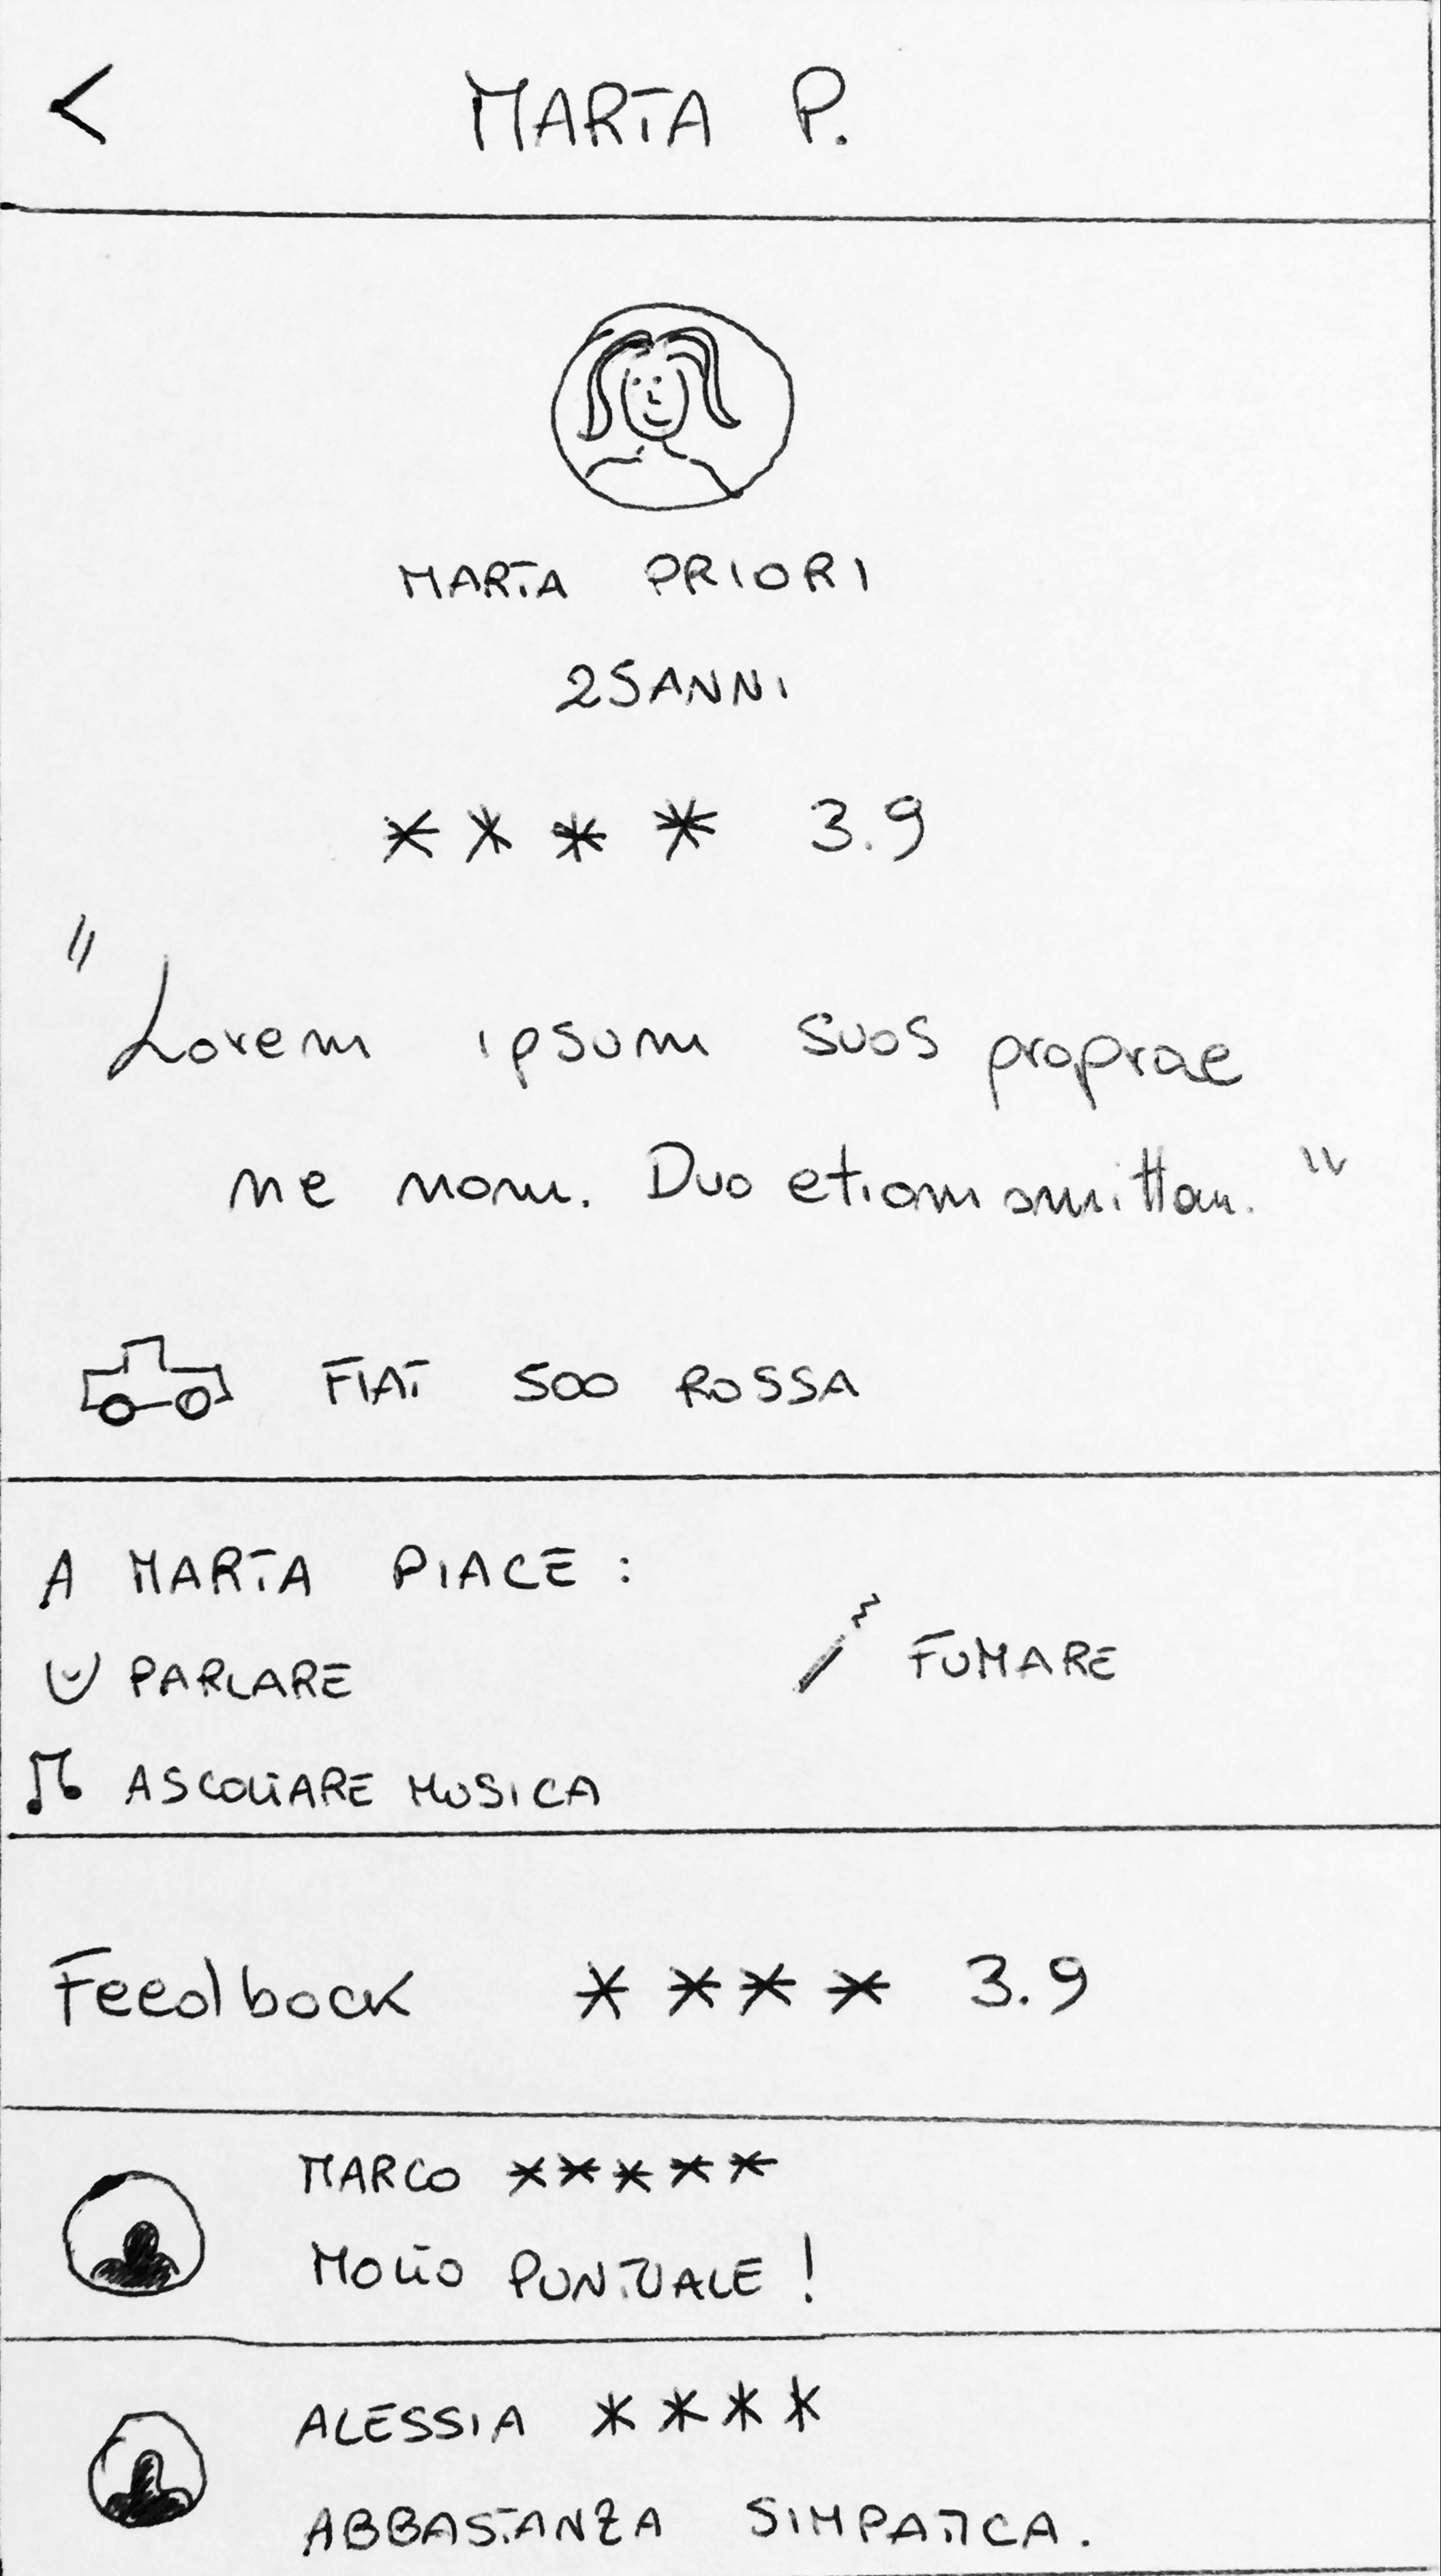 < MARTA P.
MARTA PRIORI
25 ANNI
**** 3.9
"Lorem ipsum suos proprae
ne nom. Duo etiam omittam."
FIAT 500 ROSSA
A MARTA PIACE:
FUMARE
PARLARE
ASCOLTARE MUSICA
Feedback **** 3.9
MARCO *****
MOLTO PUNTUALE!
ALESSIA ****
ABBASTANZA SIMPATICA.